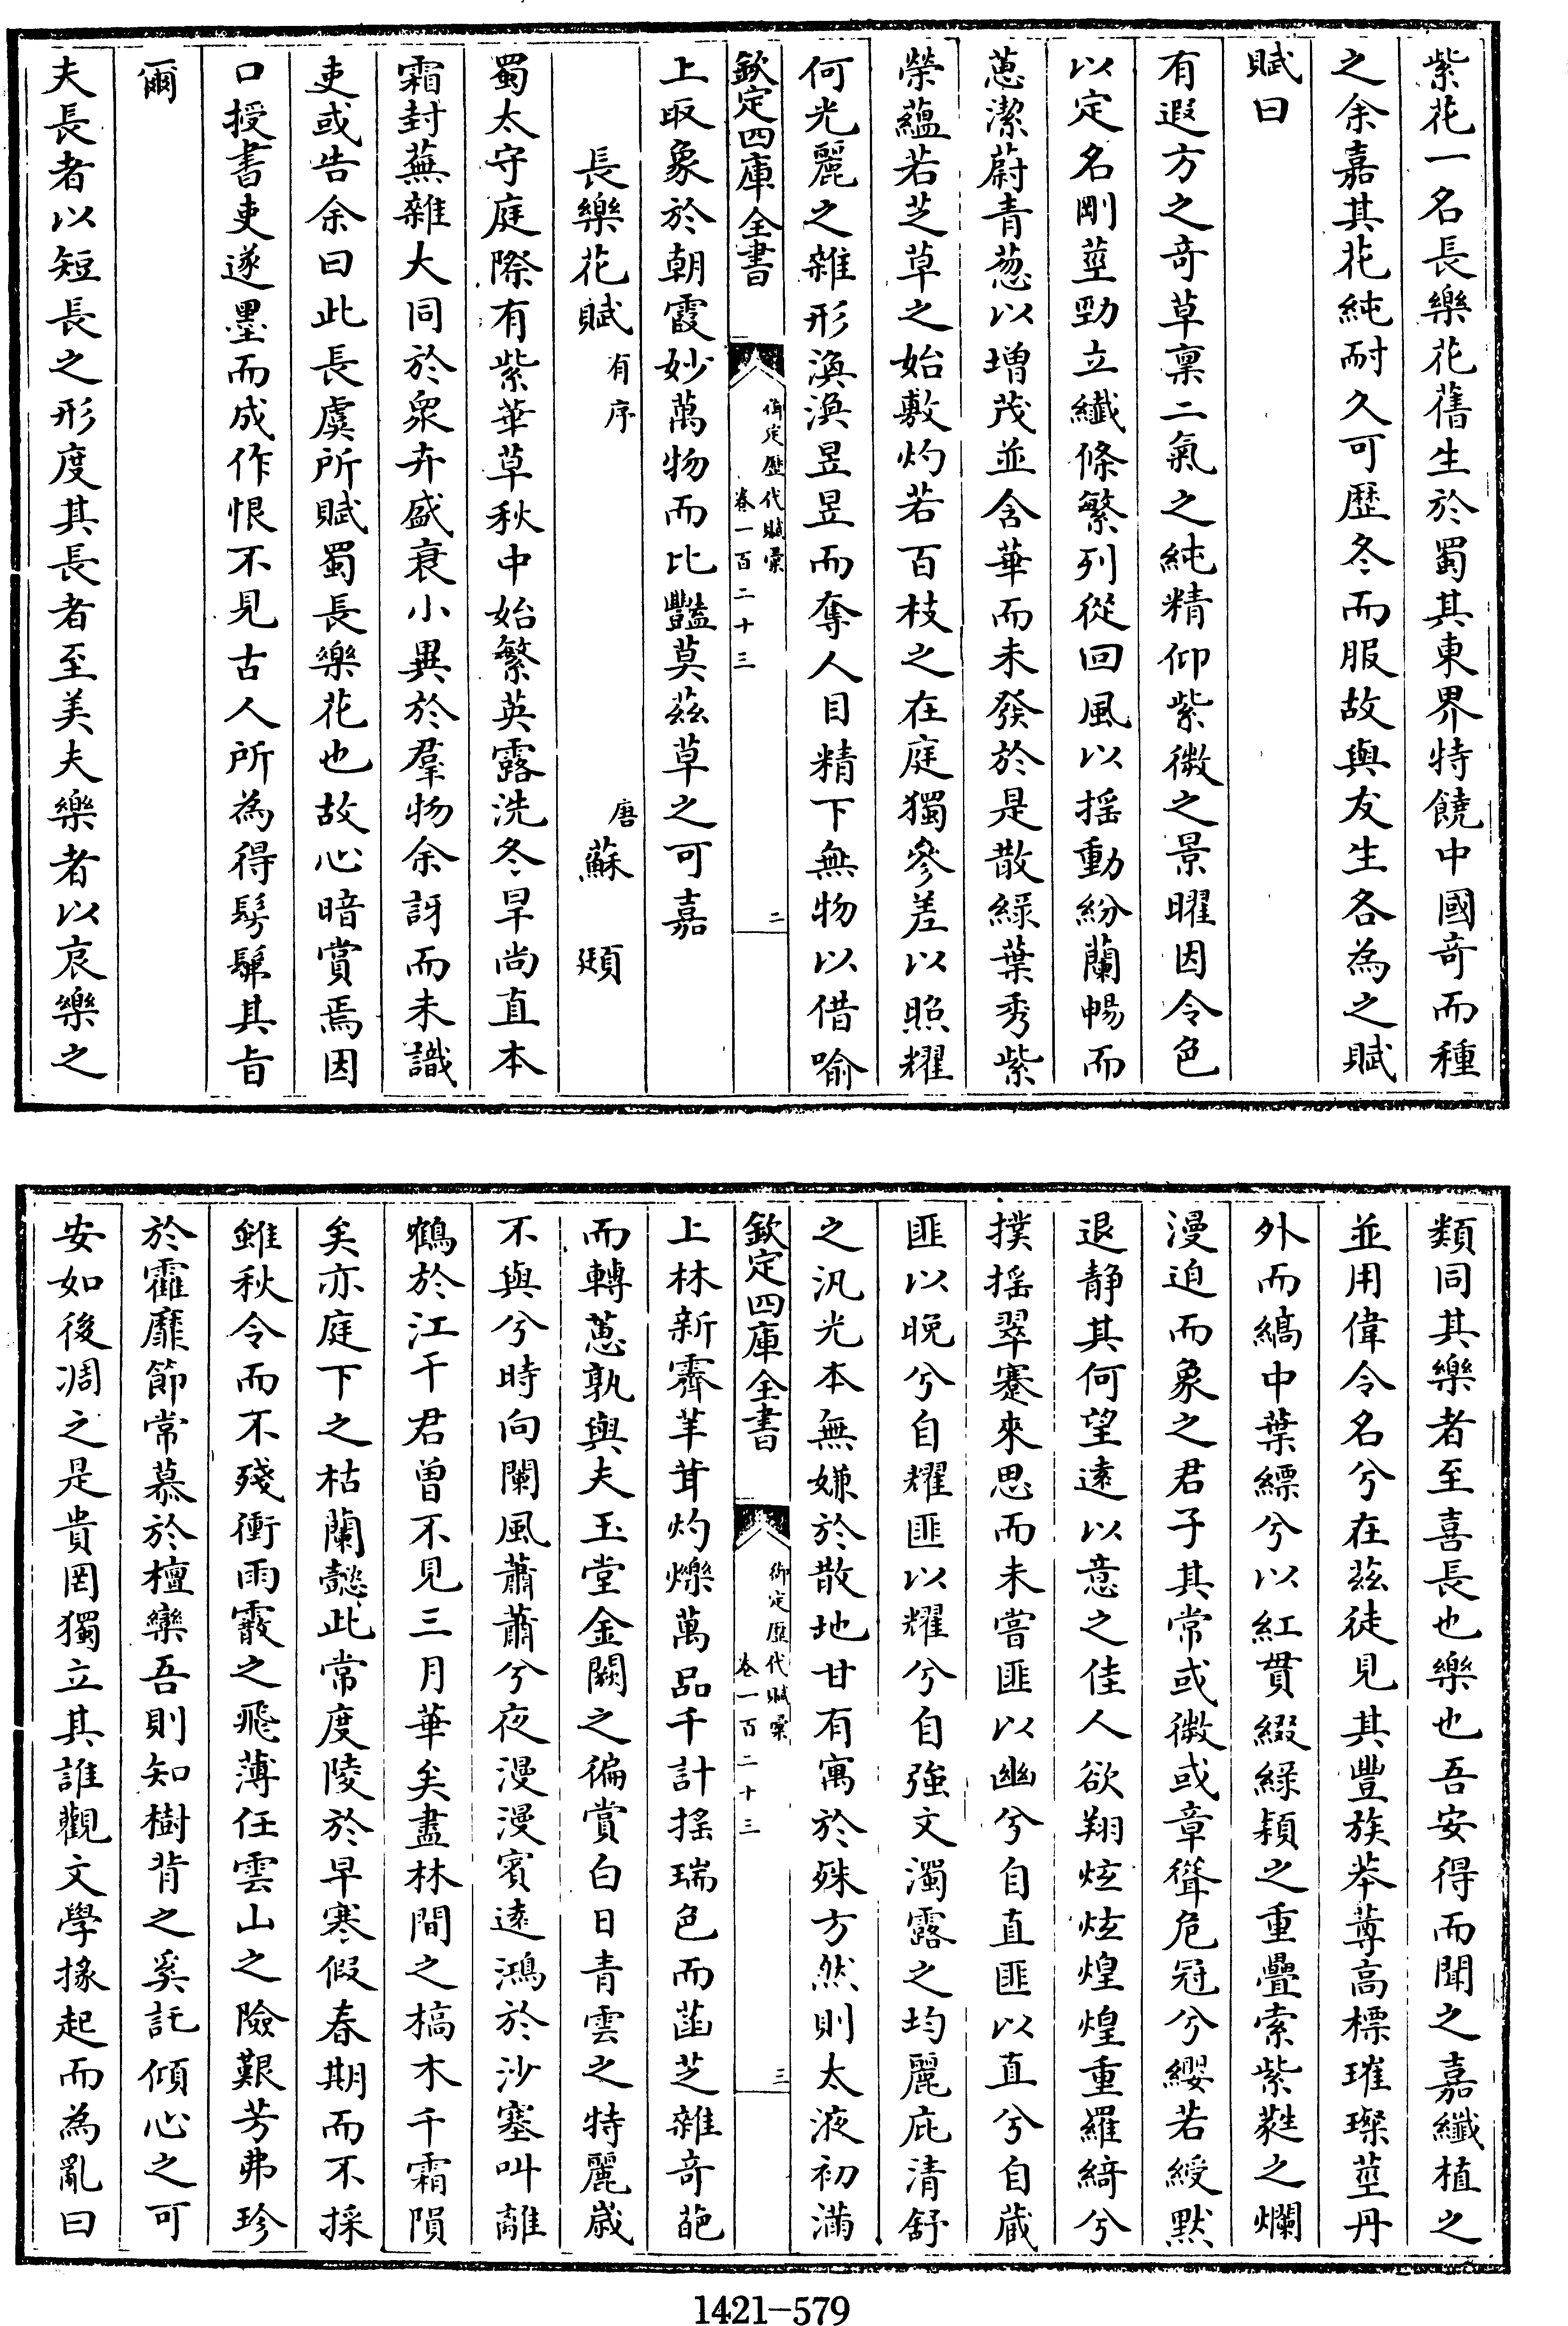 紫花一名長樂花舊生於蜀其東界特饒中國奇而種
之余嘉其花純耐久可歷冬而服故與友生各為之賦
賦曰
有遐方之奇草稟二氣之純精仰紫微之景曜因令色
以定名剛莖勁立纖條繁列從回風以揺動紛蘭暢而
蕙潔蔚青葱以增茂並含華而未發於是散緑葉秀紫
榮蘊若芝草之始敷灼若百枝之在庭獨參差以照耀
何光麗之雜形渙渙昱昱而奪人目精下無物以借喻
欽定四庫全書
御定歷代賦彙
卷一百二十三
二
上取象於朝霞妙萬物而比豔莫茲草之可嘉
長樂花賦有序 唐蘇頲
蜀太守庭際有紫華草秋中始繁英露洗冬旱尚直本
霜封蕪雜大同於衆卉盛衰小異於羣物余訝而未識
吏或告余曰此長虞所賦蜀長樂花也故心暗賞焉因
口授書吏遂墨而成作恨不見古人所為得髣髴其旨
爾
夫長者以短長之形度其長者至美夫樂者以哀樂之
類同其樂者至喜長也樂也吾安得而聞之嘉纖植之
並用偉令名兮在茲徒見其豐族苯䔿高標璀璨莖丹
外而縞中葉縹兮以紅貫綴緑穎之重疊索紫蕤之爛
漫迫而象之君子其常或微或章聳危冠兮纓若綬默
退静其何望遠以意之佳人欲翔炫炫煌煌重羅綺兮
撲揺翠蹇來思而未嘗匪以幽兮自直匪以直兮自蔵
匪以晚兮自耀匪以耀兮自強文濁露之均麗庇清舒
之汎光本無嫌於散地甘有寓於殊方然則太液初滿
欽定四庫全書
御定歷代賦彙
卷一百二十三
三
上林新霽芊茸灼爍萬品千計揺瑞色而菡芝雜奇葩
而轉蕙孰與夫玉堂金闕之徧賞白日青雲之特麗嵗
不與兮時向闌風蕭蕭兮夜漫漫賓逺鴻於沙塞叫離
鶴於江干君曽不見三月華矣盡林間之槁木千霜隕
矣亦庭下之枯蘭懿此常度陵於早寒假春期而不採
雖秋令而不殘衝雨霰之飛薄任雲山之險艱芳弗珍
於霍靡節常慕於檀欒吾則知樹背之奚託傾心之可
安如後凋之是貴罔獨立其誰觀文學掾起而為亂曰
1421-579